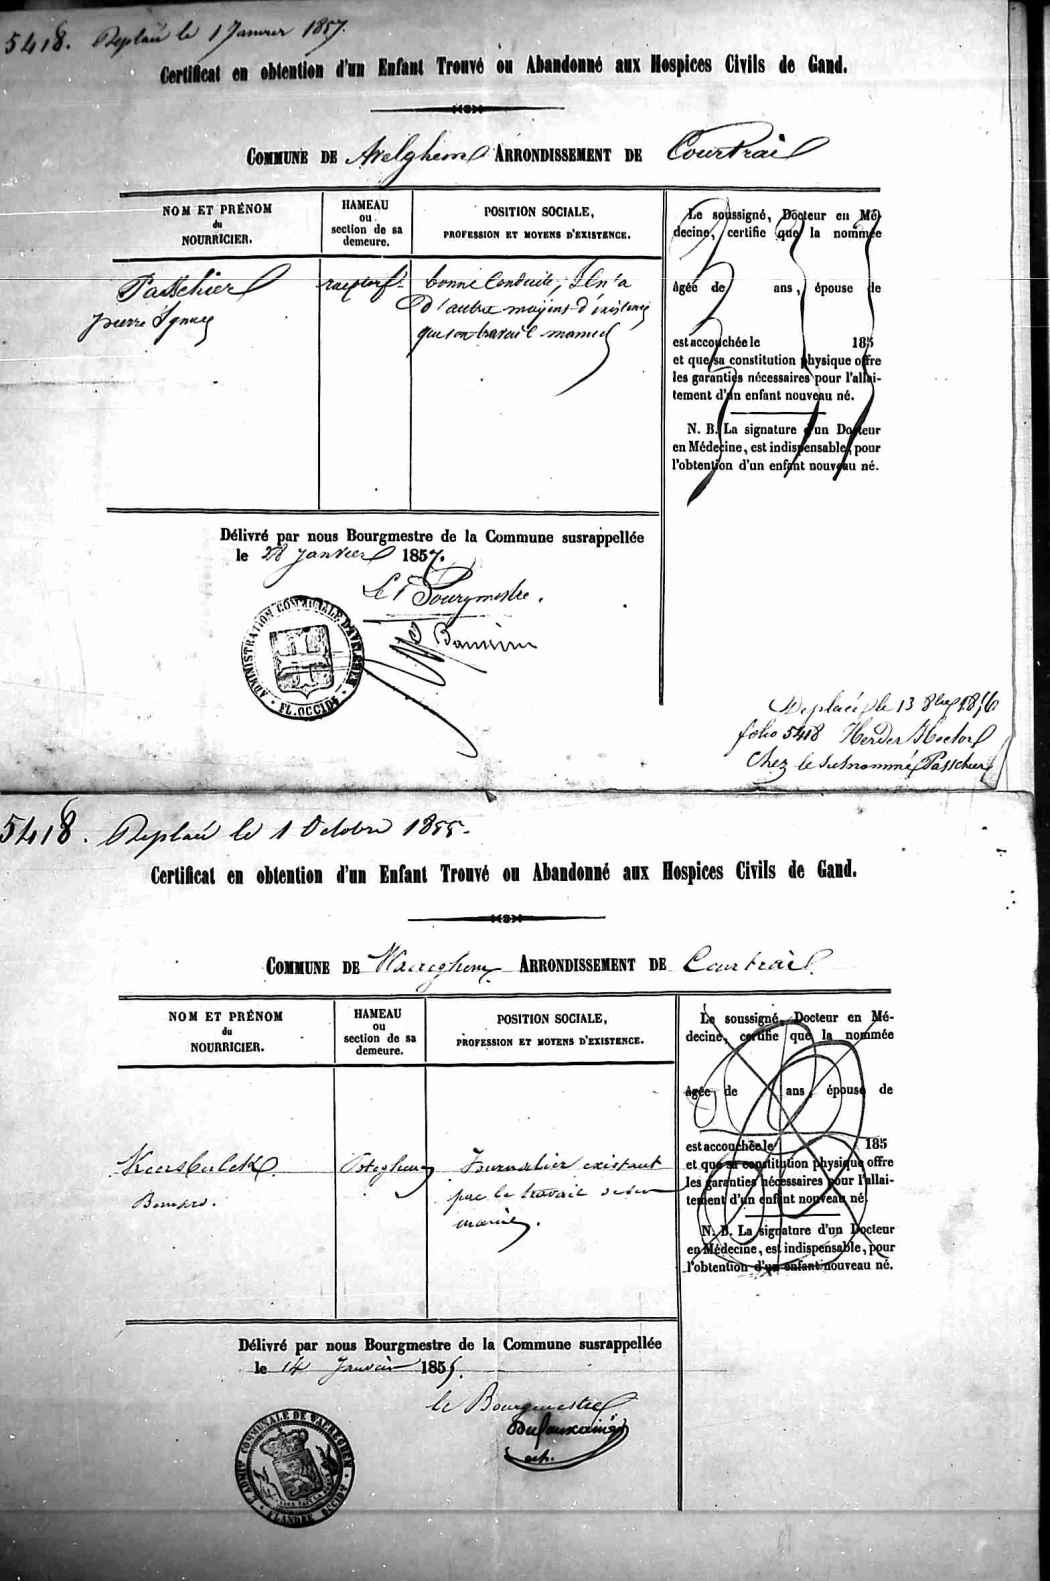 5418. Replacé le 1 Janvier 1857.
Certificat en obtention d'un Enfant Trouvé ou Abandonné aux Hospices Civils de Gand.
COMMUNE DE Avelghem ARRONDISSEMENT DE Courtrai
NOM ET PRÉNOM
du
NOURRICIER.
HAMEAU
ou
section de sa
demeure.
POSITION SOCIALE,
PROFESSION ET MOYENS D'EXISTENCE.
Passchier
pierre Ignace
bonne Conduite, Il n'a
d'autre moyens d'existence
que son travail manuel
Le soussigné, Docteur en Mé-
decine, certifie que la nommée
âgée de ans, épouse de
est accouchée le 185
et que sa constitution physique offre
les garanties nécessaires pour l'allai-
tement d'un enfant nouveau né.
N. B. La signature d'un Docteur
en Médecine, est indispensable, pour
l'obtention d'un enfant nouveau né.
Délivré par nous Bourgmestre de la Commune susrappellée
le 28 janvier 1857.
Le Bourgmestre.
ADMINISTRATION COMMUNALE D'AVELGHEM
FL. OCCIDE
Deplacé le 13 8bre 1856
folio 5418 Herder Hector
Chez le susnommé Passchier
5418. Replacé le 1 Octobre 1855.
Certificat en obtention d'un Enfant Trouvé ou Abandonné aux Hospices Civils de Gand.
COMMUNE DE Waereghem ARRONDISSEMENT DE Courtrai
NOM ET PRÉNOM
du
NOURRICIER.
HAMEAU
ou
section de sa
demeure.
POSITION SOCIALE,
PROFESSION ET MOYENS D'EXISTENCE.
Journalier existant
par le travail de ses
mains.
Le soussigné, Docteur en Mé-
decine, certifie que la nommée
âgée de ans, épouse de
est accouchée le 185
et que sa constitution physique offre
les garanties nécessaires pour l'allai-
tement d'un enfant nouveau né.
N. B. La signature d'un Docteur
en Médecine, est indispensable, pour
l'obtention d'un enfant nouveau né.
Délivré par nous Bourgmestre de la Commune susrappellée
le 14 Janvier 1855.
le Bourgmestre
ech.
L'ADMON COMMUNALE DE WAEREGHEM
FLANDRE OCCIDLE